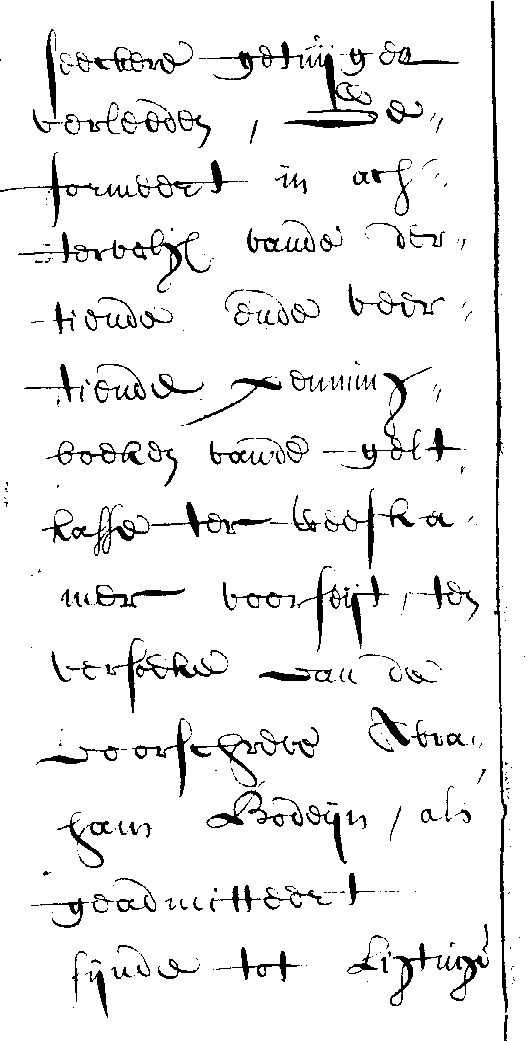 seeckere getuijgen
verleeden, ge„
formeert in ach„
tervolch vande der„
tiende ende veer„
tiende penning„
boeken vande gelt
kasse ter weeska„
mer voorseijt, ten
versoecke van de
voorschreve Abra„
ham Bodeijn, als
geadmitteert
sijnde tot